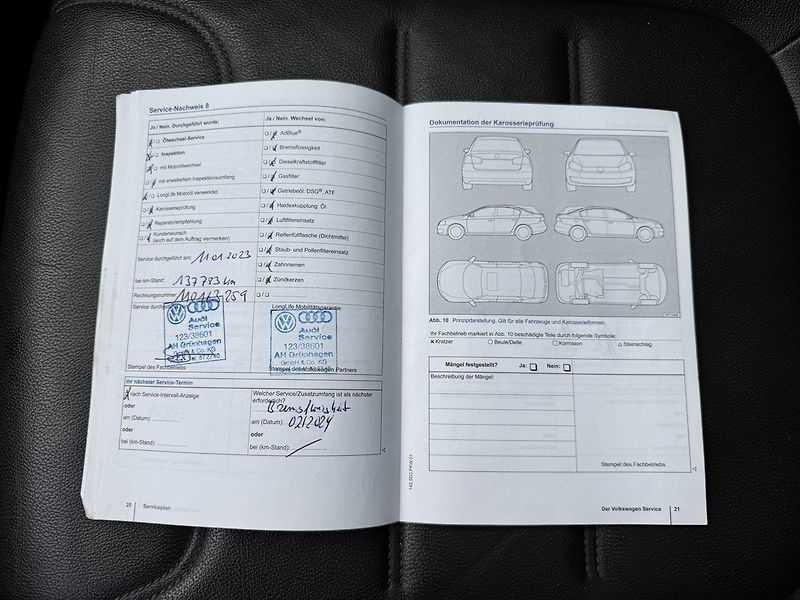 Service-Nachweis 8
Ja / Nein. Durchgeführt wurde:
Ölwechsel-Service
Inspektion
mit Motorölwechsel
mit erweitertem Inspektionsumfang
LongLife Motoröl verwendet
Karosserieprüfung
Reparaturempfehlung
Kundenwunsch
(auch auf dem Auftrag vermerken)
Service durchgeführt am: 11.01.2023
bei km-Stand: 137783 km
Rechnungsnummer:
Service durch
Audi
Service
123/38601
AH Grünhagen
GmbH & Co. KG
Stempel des Fachbetriebs
Ja / Nein. Wechsel von:
AdBlue®
Bremsflüssigkeit
Dieselkraftstofffilter
Gasfilter
Getriebeöl: DSG®, ATF
Haldexkupplung: Öl
Luftfiltereinsatz
Reifenfüllflasche (Dichtmittel)
Staub- und Pollenfiltereinsatz
Zahnriemen
Zündkerzen
LongLife Mobilitätsgarantie:
Audi
Service
123/38601
AH Grünhagen
GmbH & Co. KG
Stempel des Volkswagen Partners
Ihr nächster Service-Termin
nach Service-Intervall-Anzeige
oder
am (Datum):
oder
bei (km-Stand):
Welcher Service/Zusatzumfang ist als nächster
erforderlich?
Bremsflüssigkeit
am (Datum): 02/2024
oder
bei (km-Stand):
20 Serviceplan
Dokumentation der Karosserieprüfung
Abb. 10 Prinzipdarstellung. Gilt für alle Fahrzeuge und Karosserieformen.
Ihr Fachbetrieb markiert in Abb. 10 beschädigte Teile durch folgende Symbole:
× Kratzer ○ Beule/Delle □ Korrosion △ Steinschlag
Mängel festgestellt? Ja: Nein:
Beschreibung der Mängel:
Stempel des Fachbetriebs
142.5D3.PKW.01
Der Volkswagen Service 21